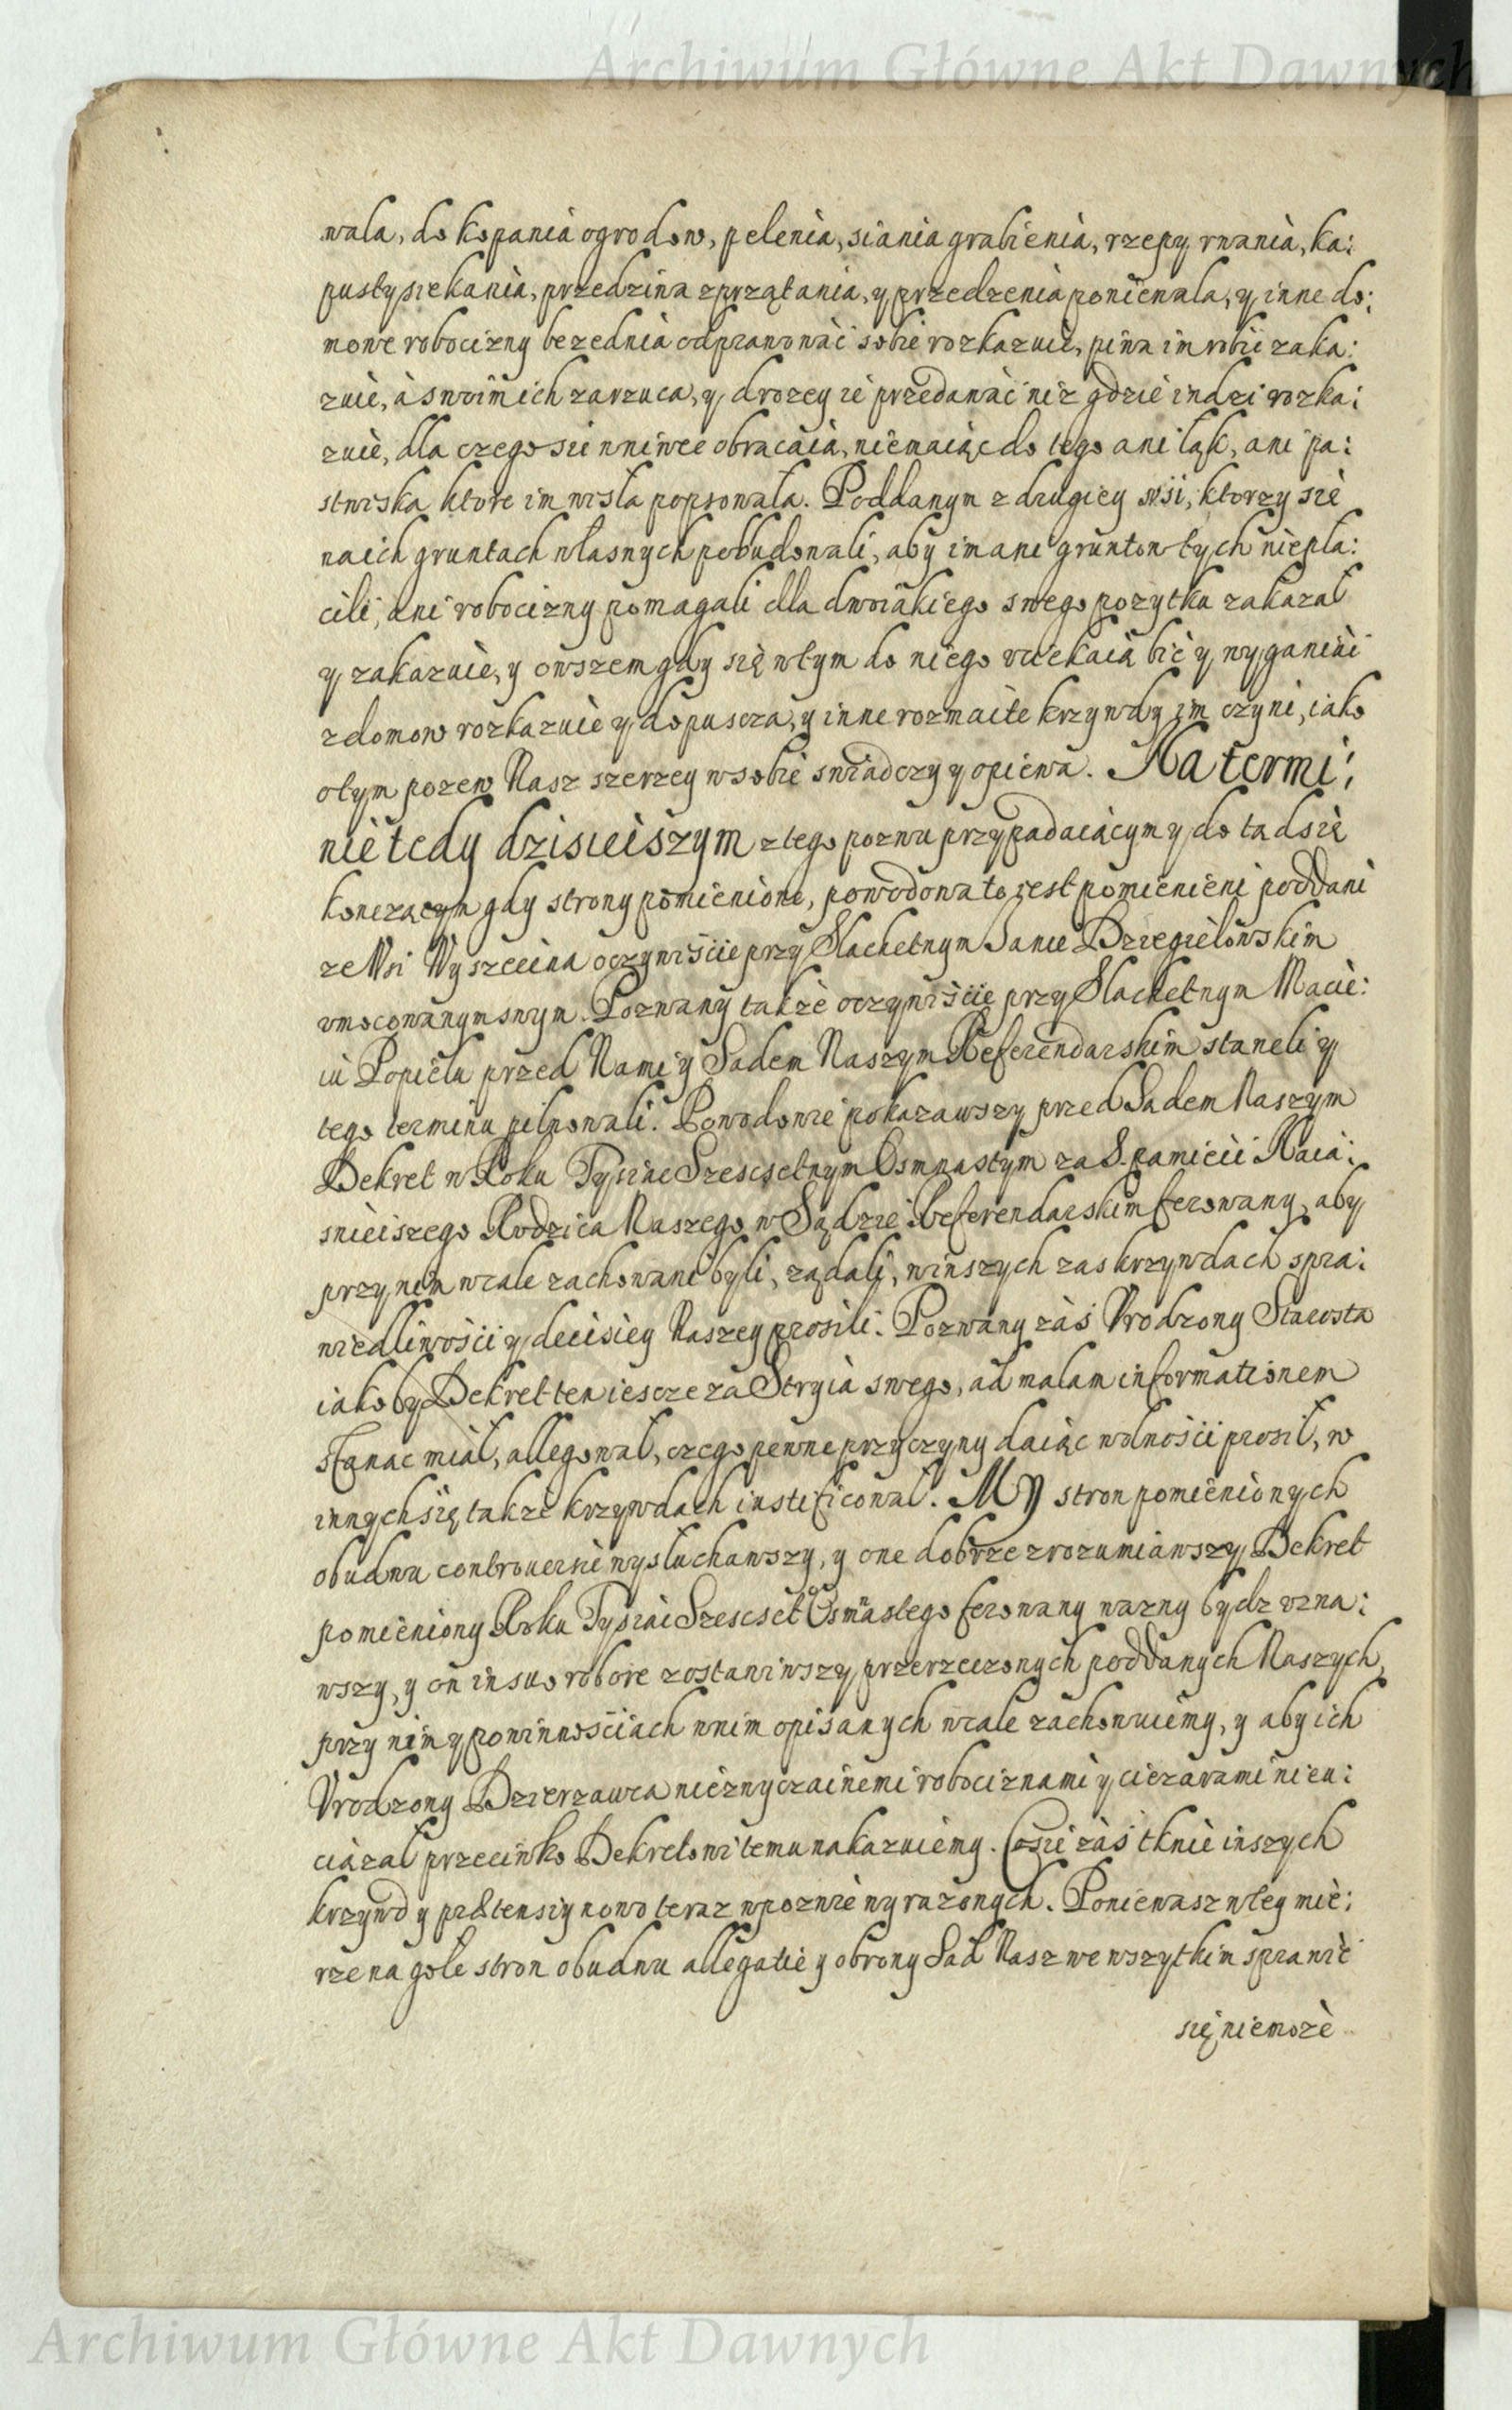 Archiwum Główne Akt Dawnych
wala, do kopania ogrodow, pelenia, siania grabienia, rzepy rwania, ka:
pusty siekania, przedziwa zprzątania, y przedzenia poniewala, y inne do:
mowe robocizny bezednia odprawowàć sobie rozkazuie, piwa im robić zaka:
zuie, à swoim ich zarzuca, y drozey ie przedawàć niż gdzie indzi rozka:
zuie, dla czego sie wniwec obracaią, niemaiąc do tego ani łąk, ani pa:
stwiska ktore im wisła popsowała. Poddanym z drugiey wsi, ktorzy się
na ich gruntach własnych pobudowali, aby im ani gruntow tych niepła:
cili, ani robocizny pomagali dla dwoiakiego swego pozytku zakazał
y zakazuie, y owszem gdy się wtym do niego vciekaią bić y wyganiać
z domow rozkazuie y dopuscza, y inne rozmaite krzywdy im czyni, iako
otym pozew Nasz szerzey w sobie swiadczy y opiewa. Na termi:
nie tedy dzisieiszym z tego pozwu przypadaiącym y do tąd się
konczącym gdy strony pomienione, powodowa to iest pomienieni poddani
ze Wsi Wyszecina oczywiście przy Slachetnym Janie Dziegielowskim
vmocowanym swym. Pozwany także oczywiście przy Slachetnym Macie:
iu Popielu przed Nami y Sądem Naszym Referendarskim staneli y
tego terminu pilnowali. Powodowie pokazawszy przed Sądem Naszym
Dekret w Roku Tysiąc Szescsetnym Osmnastym za S. pamięci Naia:
snieiszego Rodzica Naszego w Sądzie Referendarskim ferowany, aby
przy nim wcale zachowani byli, ządali, w inszych zas krzywdach spra:
wiedliwości y decisiey Naszey prosili. Pozwany zàś Vrodzony Starosta
iakoby Dekret ten iescze za Stryia swego, ad malam informationem
stanac miał, allegował, czego pewne przyczyny daiąc wolności prosił, w
innych się takze krzywdach iustificował. MY stron pomienionych
obudwu controuersie wysłuchawszy, y one dobrze zrozumiawszy, Dekret
pomieniony Roku Tysiąc Szescset Osmnastego ferowany wazny bydz vzna:
wszy, y on in suo robore zostawiwszy przerzeczonych poddanych Naszych,
przy nim y powinnościach wnim opisanych wcale zachowuiemy, y aby ich
Vrodzony Dzierzawca niezwyczainemi robociznami y ciezarami nieu:
ciązał przeciwko Dekretowi temu nakazuiemy. Co się zàś tknie inszych
krzywd y prætensiy nowo teraz wpozwie wyrazonych. Poniewasz wtey mie:
rze na gołe stron obudwu allegatie y obrony Sąd Nasz we wszytkim sprawić
się niemoże
Archiwum Główne Akt Dawnych